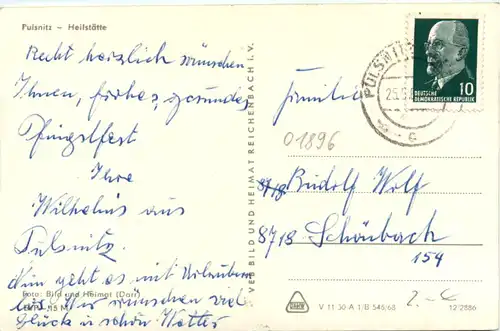 Pulsnitz – Heilstätte
Recht herzlich wünschen
Ihnen, frohes, gesundes
Pfingstfest
Ihre
Wilhelms aus
Pulsnitz.
Nun geht es mit Urlauben
los. Wir wünschen viel
Glück u. schön. Wetter
Foto: Bild und Heimat (Darr)
VEB BILD UND HEIMAT REICHENBACH I. V.
PULSNITZ
DEUTSCHE
DEMOKRATISCHE REPUBLIK
10
Familie
01896
Rudolf Wolf
8718 Schönbach
154
V 11 50 A 1/B 546/68
12/2886
2.-